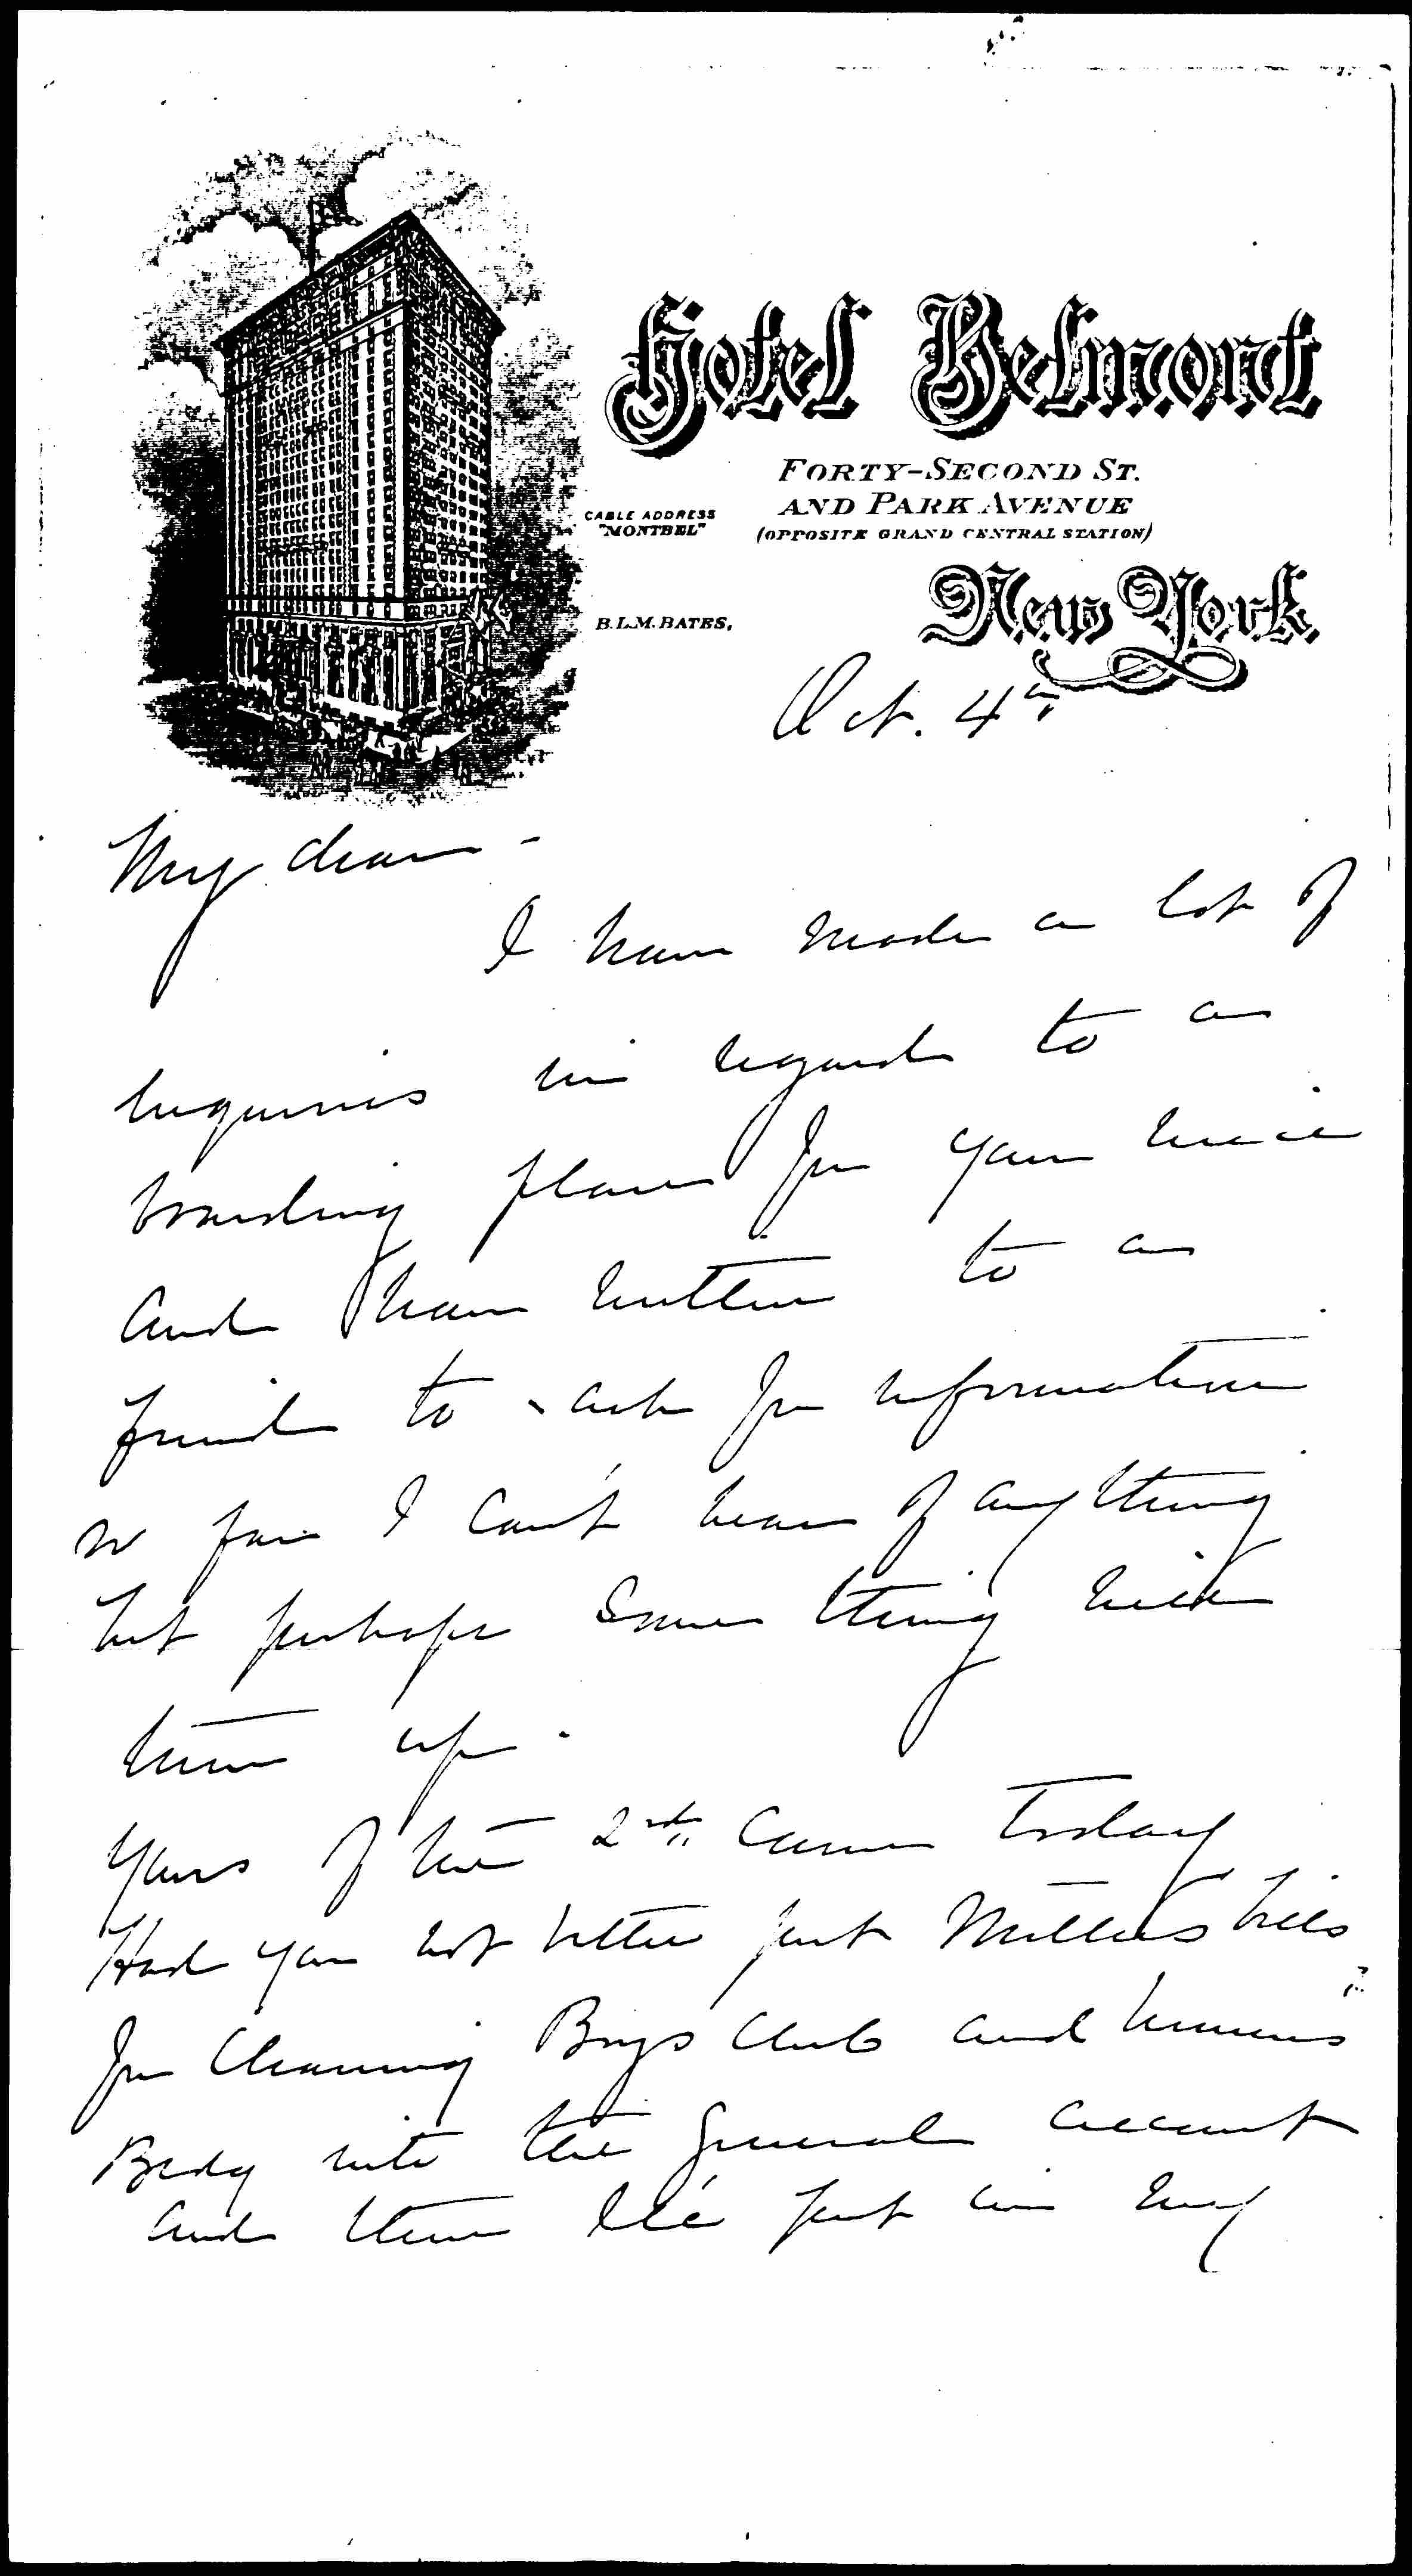 Hotel Belmont
FORTY-SECOND ST.
AND PARK AVENUE
(OPPOSITE GRAND CENTRAL STATION)
CABLE ADDRESS
"MONTBEL"
New York
B.L.M. BATES,
Oct. 4th
My dear -
I have made a lot of
inquiries in regard to a
boarding place for your niece
and have written to a
friend to ask for information
so far I can't hear of anything
but perhaps something will
turn up.
Yours of the 2nd came today
Had you not better put Millers bills
for cleaning Boys Club and
Bldg into the general account
and then I'll put in my